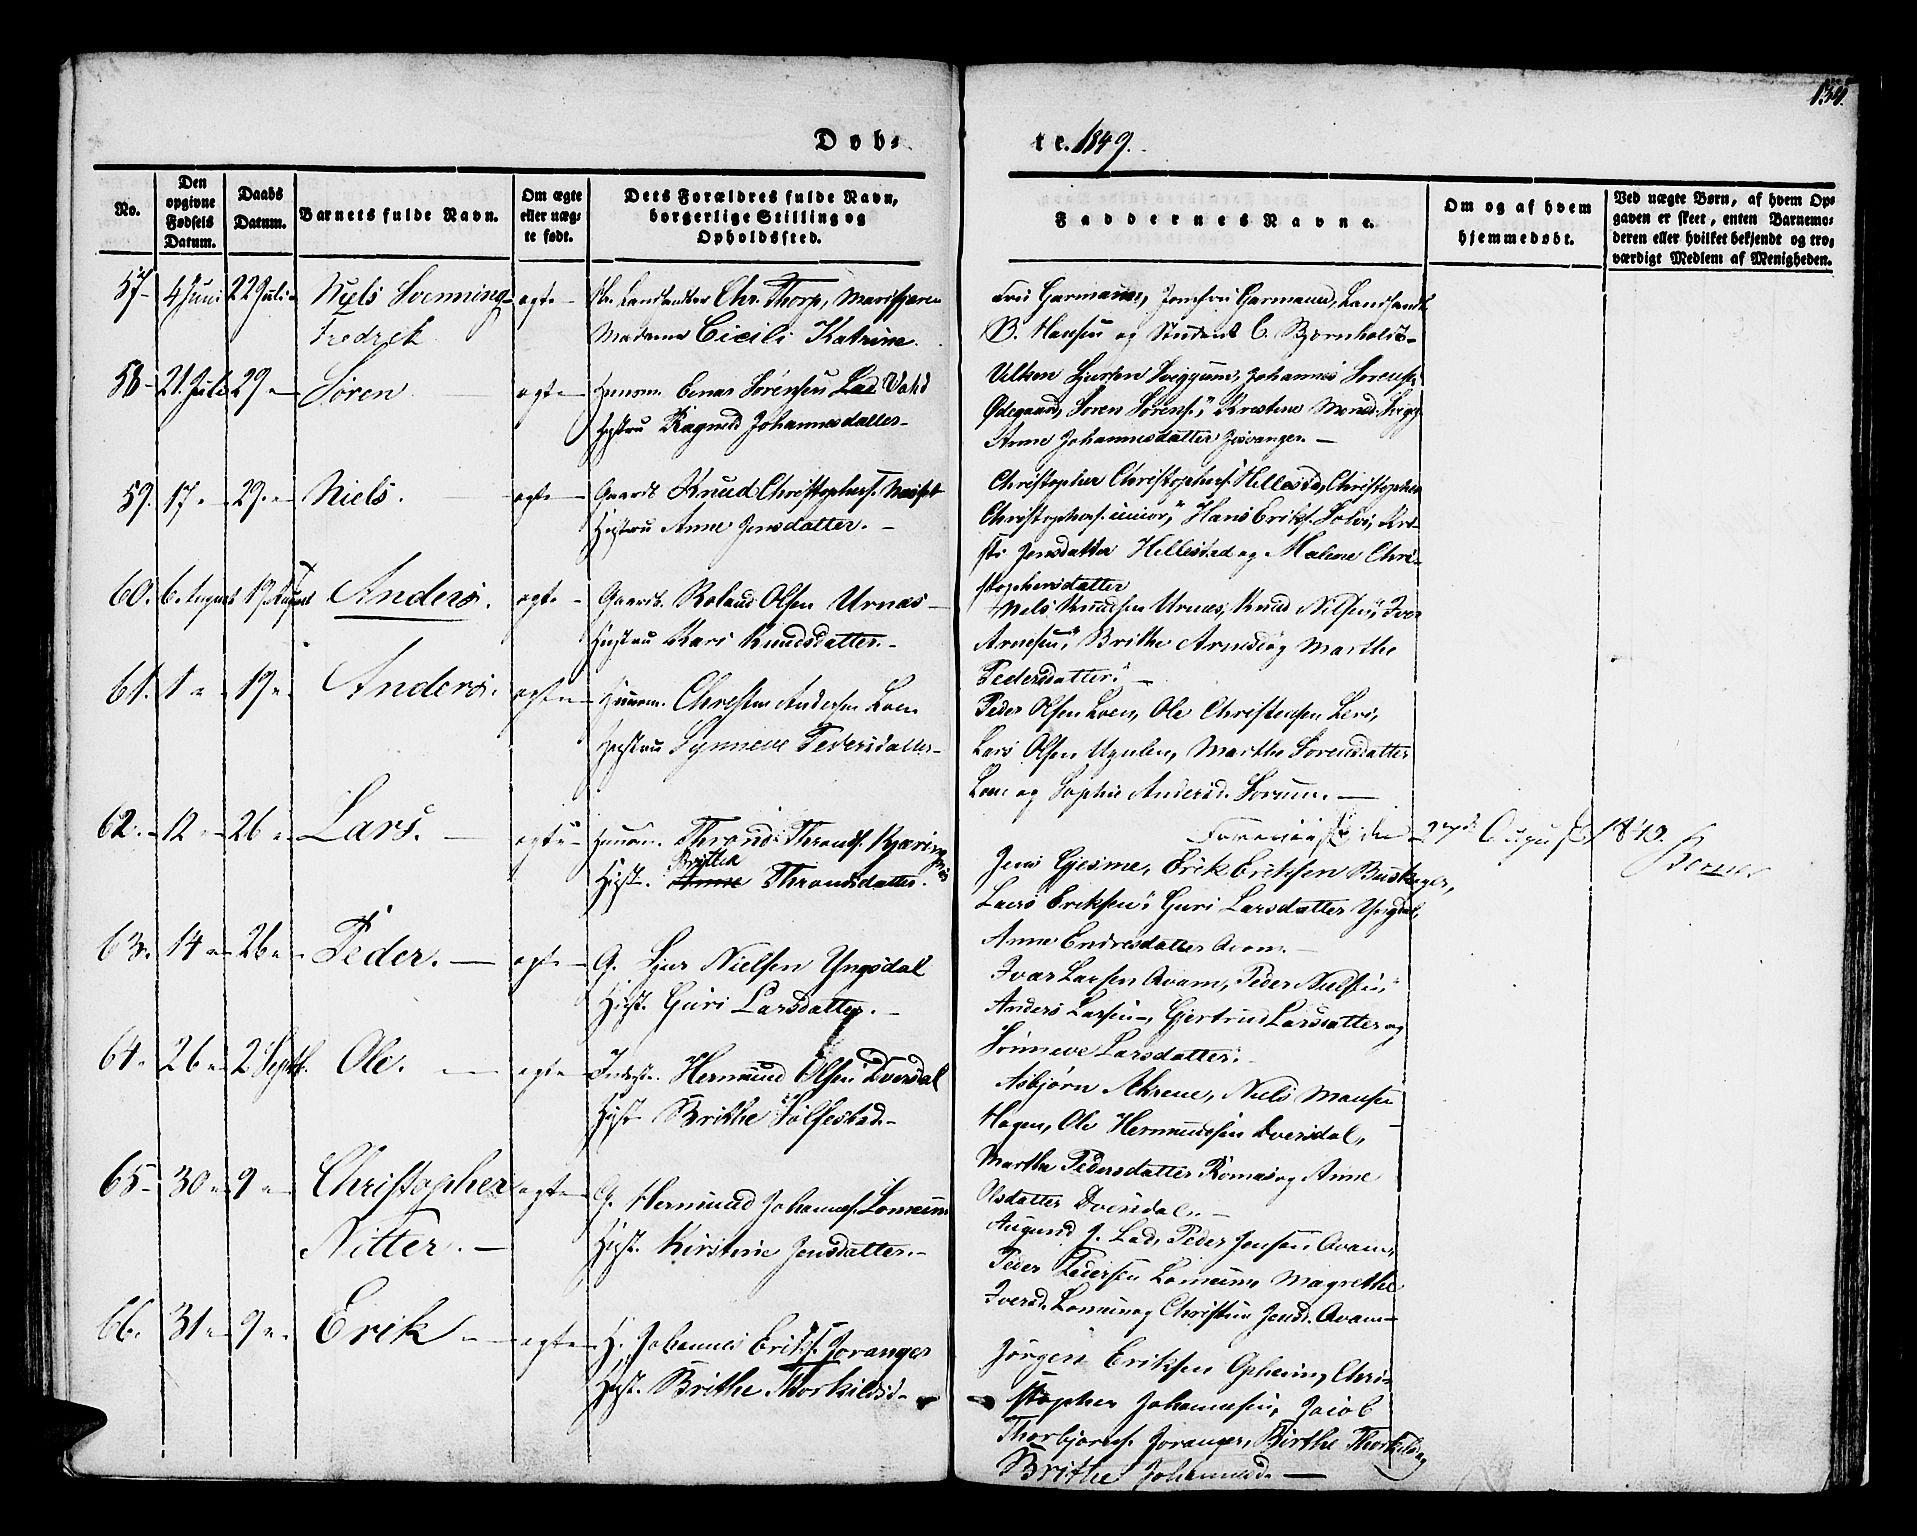 134.
Døb-
te. 1849.
No.
Den opgivne Fødsels Datum.
Daabs Datum.
Barnets fulde Navn.
Om ægte eller uægte født.
Dets Forældres fulde Navn, borgerlige Stilling og Opholdssted.
Faddernes Navne.
Om og af hvem hjemmedøbt.
Ved uægte Børn, af hvem Opgaven er skeet, enten Barnemoderen eller hvilket bekjendt og troværdigt Medlem af Menigheden.
57- 4 Juni 22 Juli Niels Svenning ægte Chr. Thorp, Marifjæren
Fredrik Madame Cicili Katrine.
Fru Garmann, Jomfru Garmann, Landhandl
B. Hansen og Student C. Bjørnholdt-
58- 21 Juli 29 Søren ægte Huusm. Søren Sørensen Lad
Hustru Ragnild Johannesdatter-
Johannes Sørens.
Ødegaard, Søren Sørens.
Anne Johannesdatter Joranger.
59. 17 29 Niels. ægte Gaardb. Knud Christophers.
Hustru Anne Jensdatter.
Christopher Christophers. Hillestad, Christopher
Christophers. junior, Hans Eriks. Solvi, Kri-
sti Jensdatter Hillestad og Malene Chri-
stophersdatter
60. 6 August 19 August Anders. ægte Gaardb. Roland Olsen Urnæs
Hustru Kari Knudsdatter.
Niels Knudsen Urnæs, Knud Nilsen, Iver
Arnesen, Brithe Arnesd. og Marthe
Pedersdatter.
61. 1 19 Anders. ægte Huusm. Christen Andersen Loen
Hustru Synneve Pedersdatter
Peder Olsen Loen, Ole Christensen Leri,
Lars Olsen Marthe Sørensdatter
Loen og Sophie Andersd. Sorum.
62. 12 26 Lars. ægte Huusm. Thrond Thronds. Kjæringnæs
Hust. Anne Brithe Throndsdatter.
27de August 1849.
Jens Gjesme, Erik Eriksen Buskager,
Lars Eriksen, Guri Larsdatter Yngsdal,
Anne Endresdatter Qvam.
63. 14 26 Peder. ægte G. Sjur Nielsen Yngsdal
Hust. Guri Larsdatter.
Ivar Larsen Qvam, Peder Nielsen,
Anders Larsen, Gjertrud Larsdatter og
Sønneve Larsdatter.
64. 26 2 Septb. Ole. ægte Inderst. Hermund Olsen Dversdal
Hust. Brithe Solfestad.
Asbjørn Niels Monsen
Hagen, Ole Hermundsen Dversdal,
Marthe Pedersdatter Romas og Anne
Olsdatter Dversdal.
65- 30 9 Christopher ægte G. Hermund Johannes. Lomeum
Nitter. Hust. Kirstine Jensdatter.
Augund J. Lad, Peder Jensen Qvam,
Peder Pedersen Lomeum, Magrethe
Iversd. Lomeum og Christine Jensd. Qvam
66. 31 9 Erik ægte H. Johannes Eriks. Joranger
Hust. Brithe Thorkildsd.
Jørgen Eriksen Opheim, Chri-
stopher Johannesen, Jacob
Thorbjørns. Joranger, Birthe Thorkildsd. og
Brithe Johannesd.